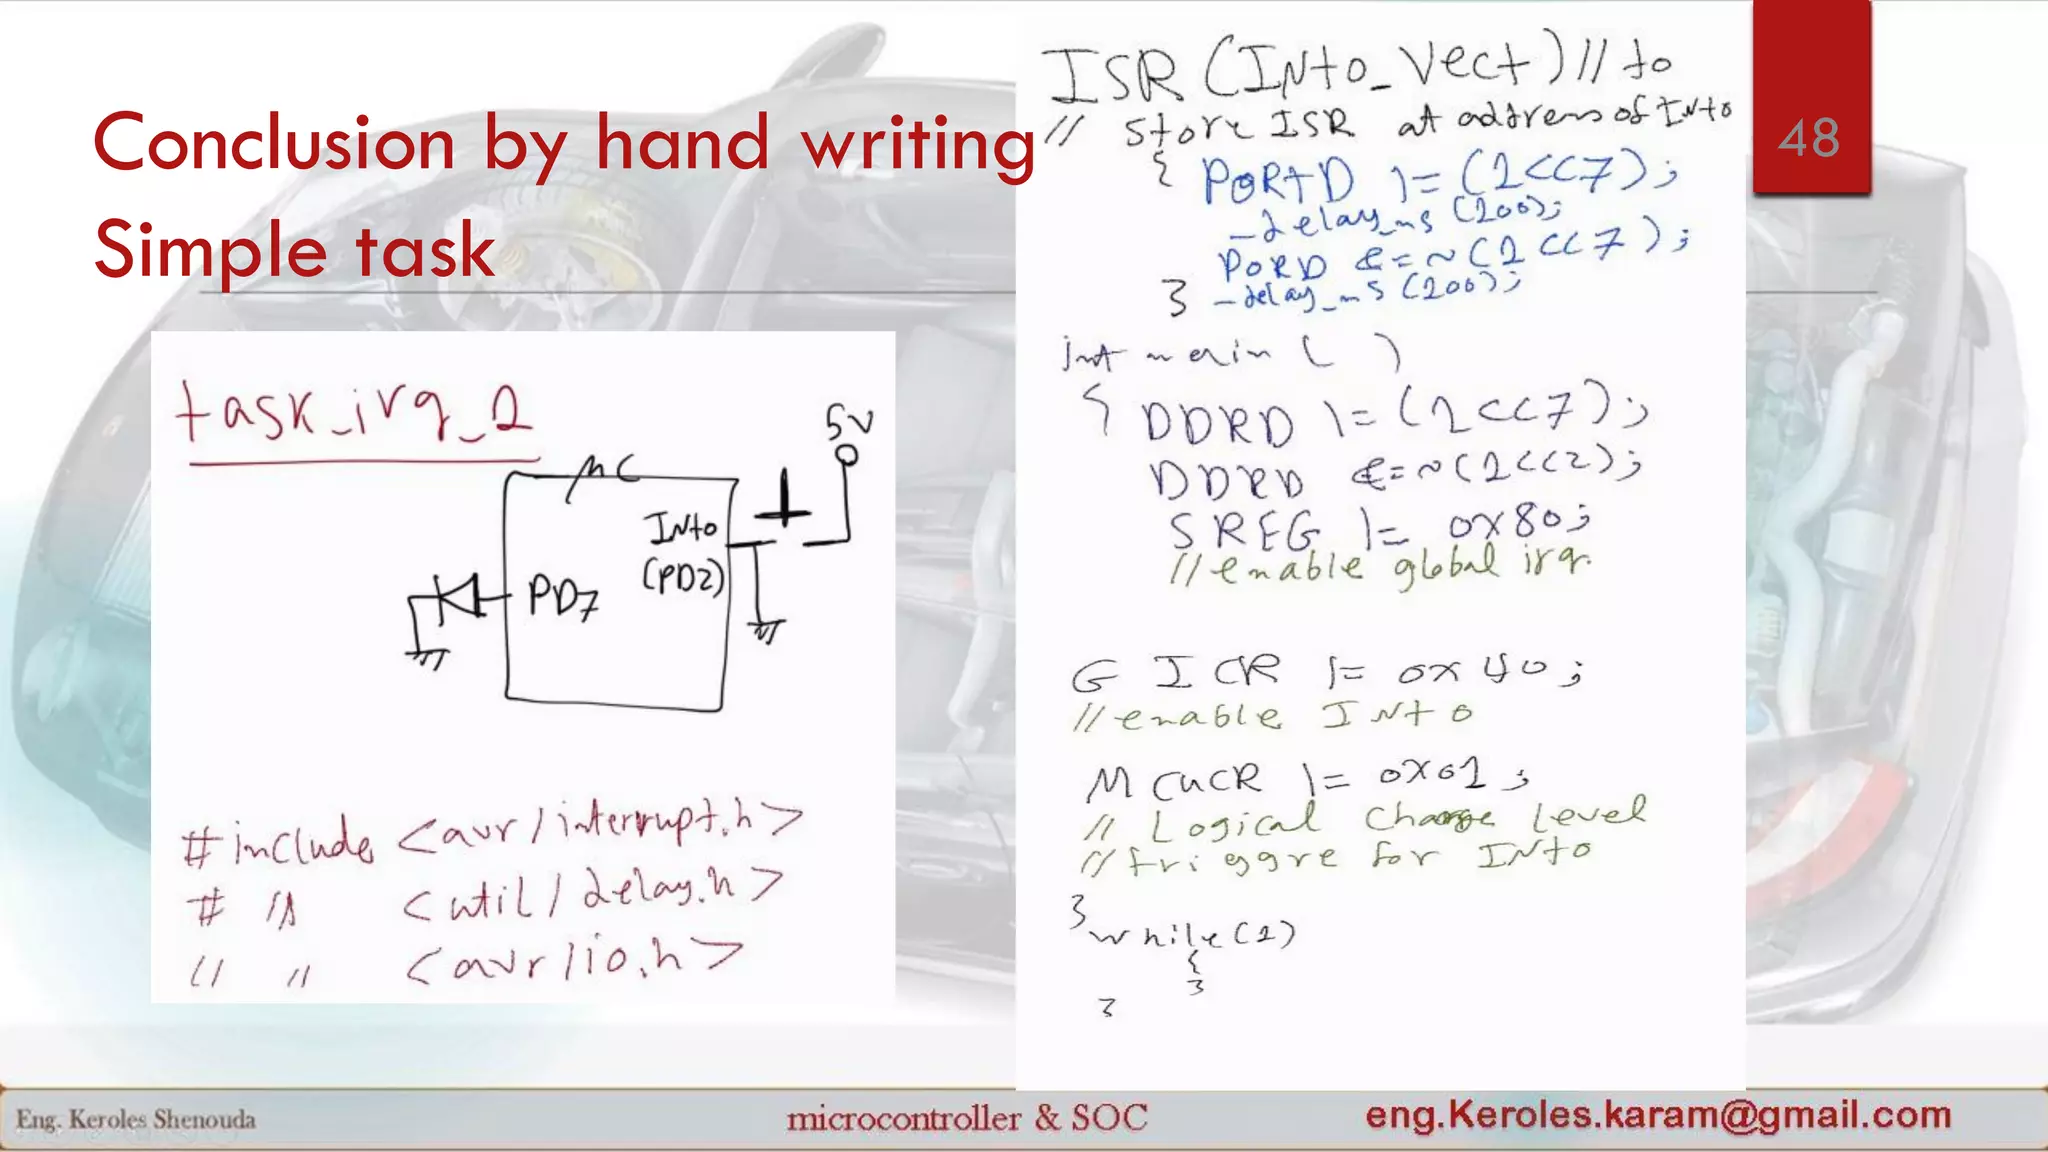 Conclusion by hand writing
Simple task
48
task_irq_1
MC
5V
INT0
(PD2)
PD7
#include <avr/interrupt.h>
# " <util/delay.h>
" " <avr/io.h>
ISR(INT0_Vect)// to
// store ISR at address of INT0
{ PORTD |= (1<<7);
_delay_ms(200);
PORD &=~(1<<7);
} _delay_ms(200);
int main ( )
{ DDRD |= (1<<7);
DDRD &=~(1<<2);
SREG |= 0x80;
//enable global irq.
GICR |= 0x40;
//enable INT0
MCUCR |= 0x01;
// Logical change Level
//triggre for INT0
}
while(1)
{
}
}
Eng. Keroles Shenouda
microcontroller & SOC
eng.Keroles.karam@gmail.com